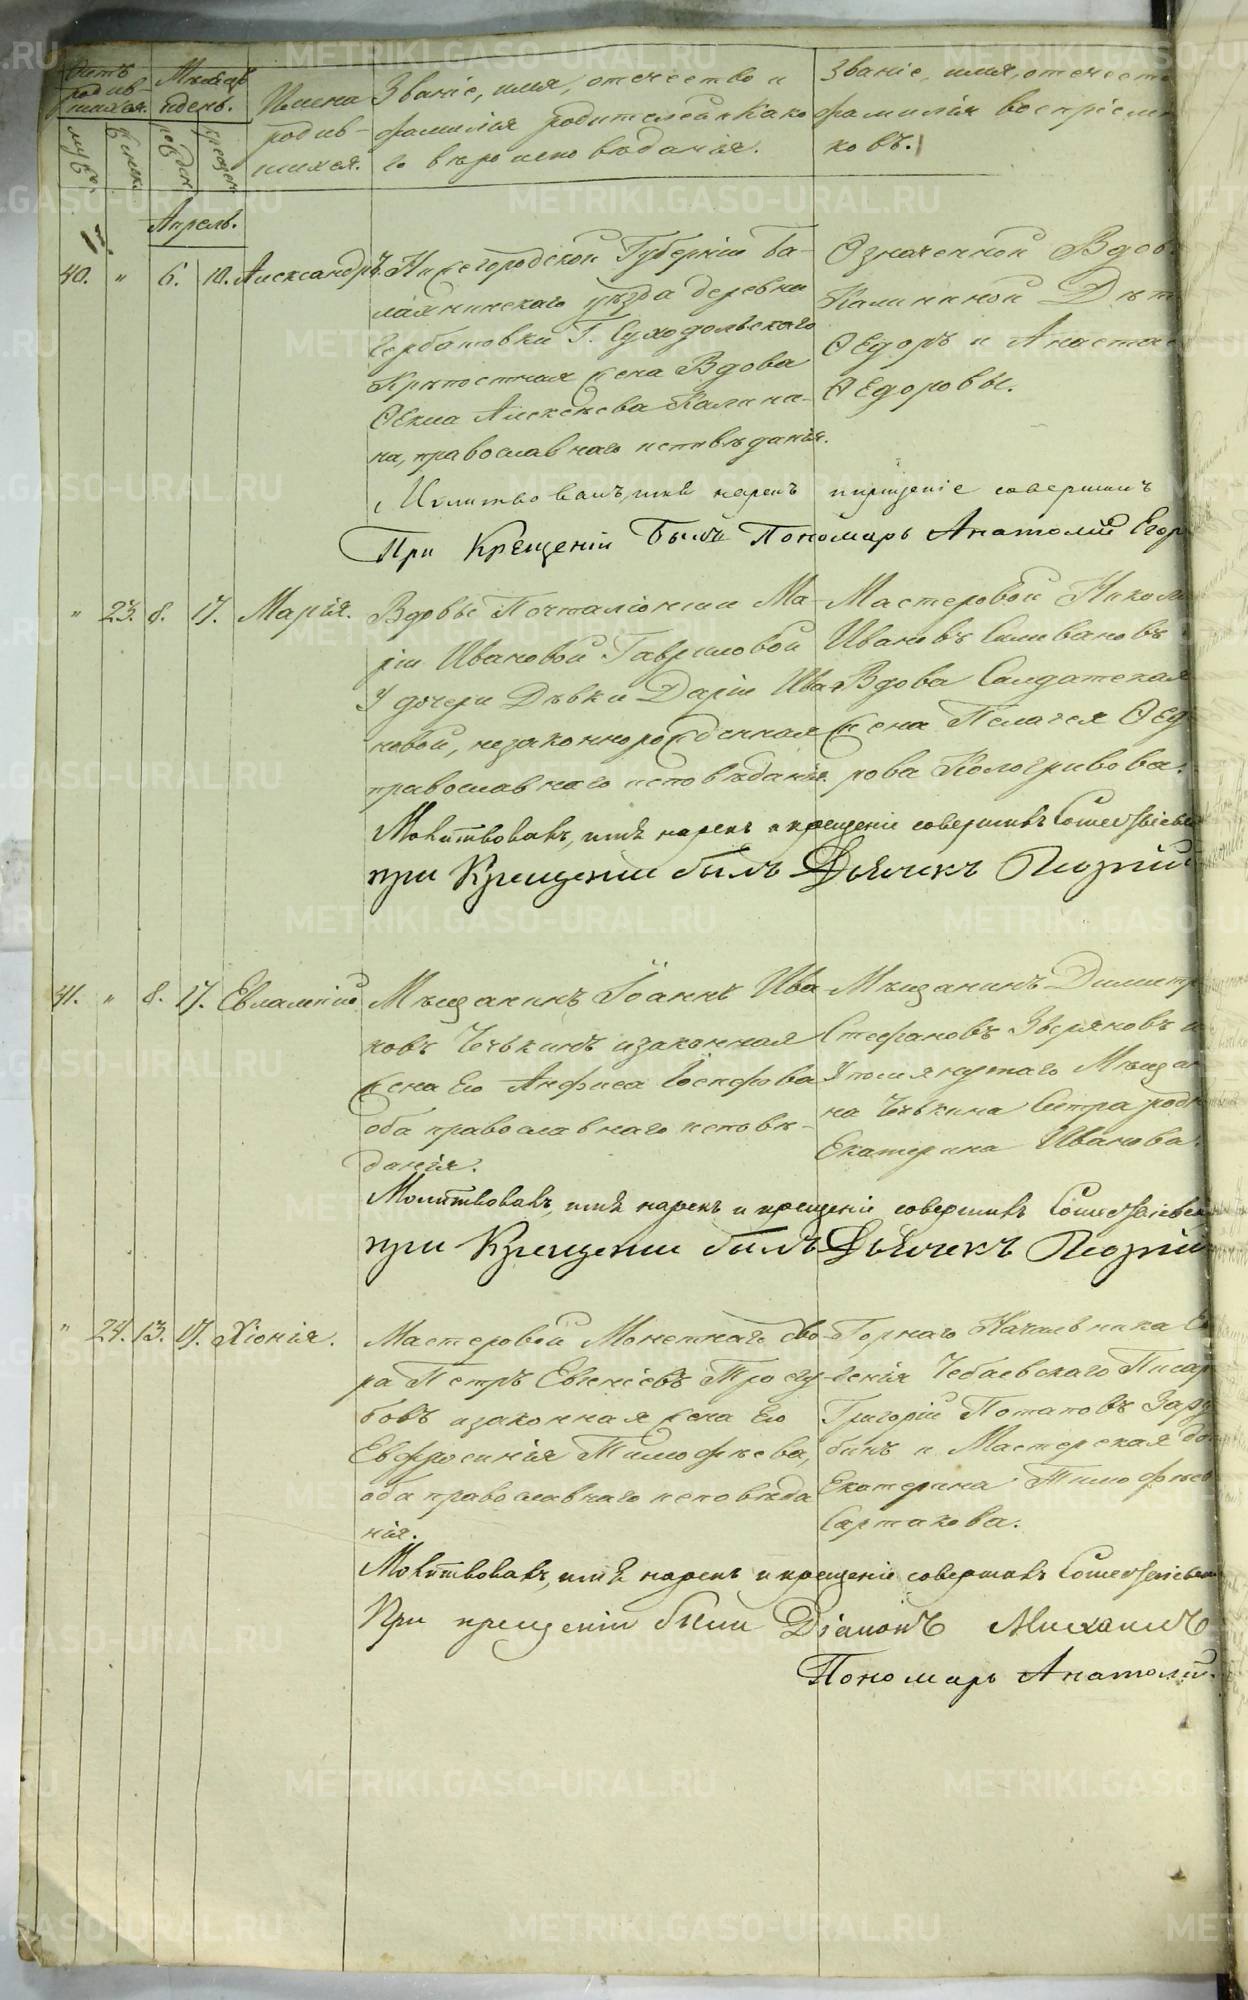 Счетъ родив-шихся.
Мѣсяцъ и день.
Имена родив-шихся.
Званіе, имя, отчество и
фамилія родителей и како
го вѣроисповѣданія.
Званіе, имя, отчест
фамилія воспріем
ковъ.
Апрель.
40. " 6. 10. Александръ.
Нижегородской Губерніи Ба-
лахнинскаго уѣзда деревни
Горбатовки Г. Суходольскаго
Крѣпостная жена Вдова
Ѳекла Алексѣева Калини-
на, православнаго исповѣданія.
Означенной Вдов
Калининой Дѣт
Ѳедоръ и Анастас
Ѳедоровы.
Молитвовалъ, имя нарекъ и крещеніе совершилъ
При Крещеніи Былъ Пономарь Анатолій Егор
" 23. 8. 17. Марія.
Вдовы Почталіонши Ма-
ріи Ивановой Гавриловой
у дочери Дѣвки Даріи Ива-
новой, незаконнорожденная
православнаго исповѣданія.
Мастеровой Никол
Ивановъ Селивановъ
Вдова Салдатская
жена Пелагея Ѳед
рова Кологривова.
Молитвовалъ, имя нарекъ и крещеніе совершилъ
при Крещеніи былъ Дьячекъ Георгій
41. " 8. 17. Евлампій.
Мѣщанинъ Іоаннъ Ива
новъ Чечькинъ и законная
жена Его Анфиса Іосифова
оба православнаго исповѣ-
данія.
Мѣщанинъ Димитр
Стефановъ Звѣряковъ и
упомянутаго Мѣщан
на Чечькина Сестра родн
Екатерина Иванова.
Молитвовалъ, имя нарекъ и крещеніе совершилъ
при Крещеніи былъ Дьячекъ Георгій
" 24. 13. 17. Хіонія.
Мастеровой Монетнаго дво-
ра Петръ Евгеніевъ Трегу-
бовъ и законная жена Его
Евфросинія Тимофѣева,
оба православнаго исповѣда
нія.
Горнаго Начальника Ев
генія Чебаевскаго Писар
Григорій Потаповъ Зару
бинъ и Мастерская до
Екатерина Тимофѣев
Сартакова.
Молитвовалъ, имя нарекъ и крещеніе совершилъ
При крещеніи были Діаконъ Михаилъ
Пономарь Анатолій.